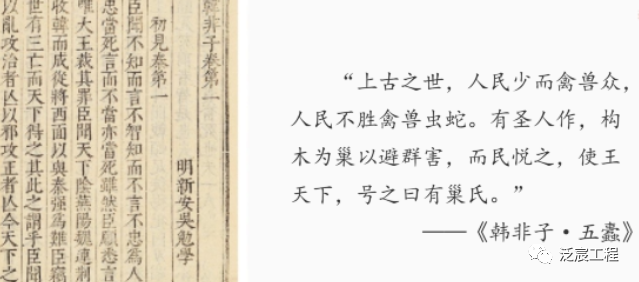 韓非子卷第一
明新安吳勉學
初見秦第一
臣聞不知而言不智知而不言不忠爲人
忠當死言而不當亦當死雖然臣願悉言
唯大王裁其罪臣聞天下陰燕陽魏連荆
收韓而成從將西面以與秦强爲難臣竊
世有三亡而天下得之其此之謂乎臣聞
以亂攻治者亾以邪攻正者亾今天下之
“上古之世，人民少而禽兽众，
人民不胜禽兽虫蛇。有圣人作，构
木为巢以避群害，而民悦之，使王
天下，号之曰有巢氏。”
——《韩非子·五蠹》
泛宸工程